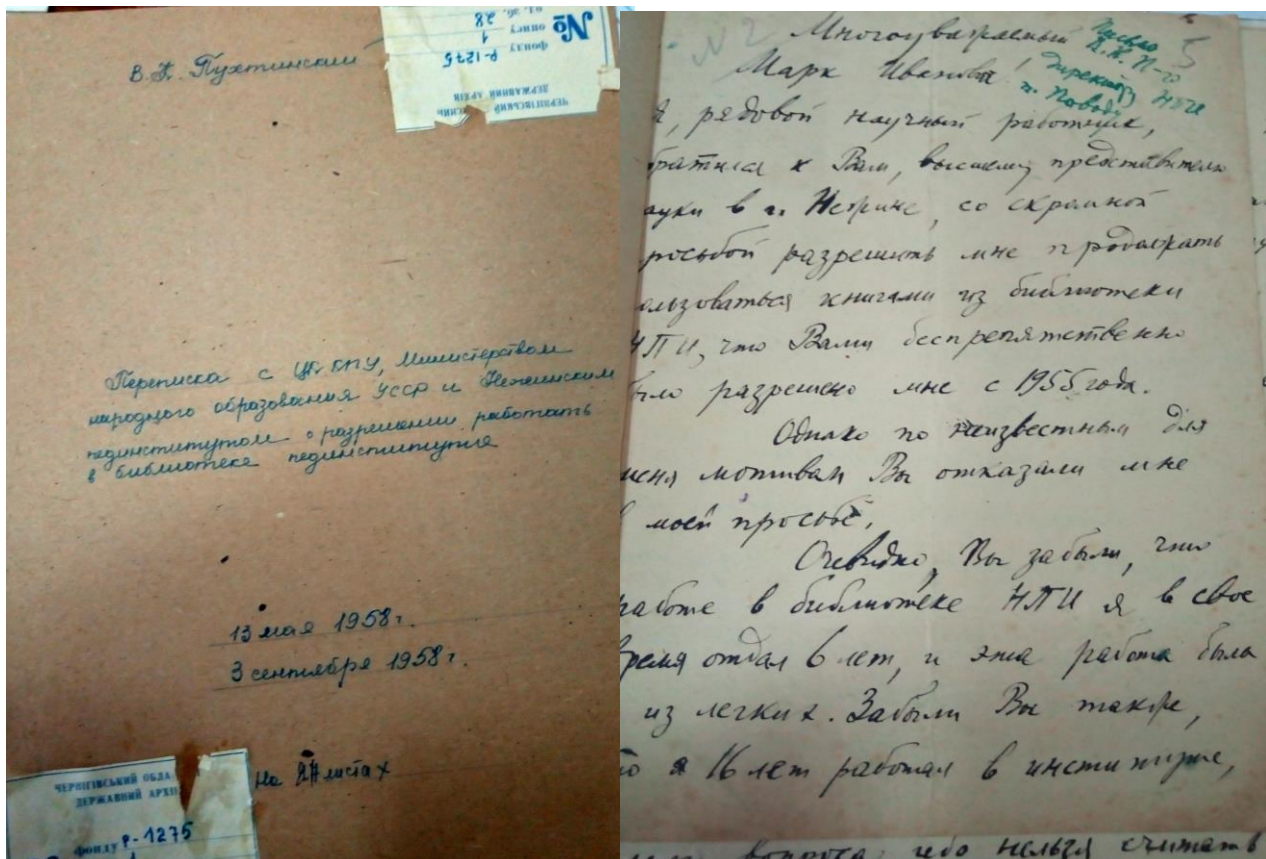 В. К. Пухтинский
№
01. зб. 28
опису 1
фонду Р-1275
ДЕРЖАВНИЙ АРХІВ
ЧЕРНІГІВСЬКИЙ
Переписка с ЦК КПУ, Министерством
народного образования УССР и Нежинским
пединститутом о разрешении работать
в библиотеке пединститута
13 мая 1958 г.
3 сентября 1958 г.
На листах
ЧЕРНІГІВСЬКИЙ ОБЛА
ДЕРЖАВНИЙ АРХІ
фонду Р-1275
1
№ 2
5
Письмо
П-го
директору НПИ
т. Повод
Многоуважаемый
Марк Иванович!
Я, рядовой научный работник,
братился к Вам, высшему представителю
ауки в г. Нежине, со скромной
росьбой разрешить мне продолжать
ользоваться книгами из библиотеки
НПИ, что Вами беспрепятственно
ыло разрешено мне с 1955 года.
Однако по неизвестным для
меня мотивам Вы отказали мне
в моей просьбе.
Очевидно, Вы забыли, что
работе в библиотеке НПИ я в свое
время отдал 6 лет, и эта работа была
из легких. Забыли Вы также,
то я 16 лет работал в институте,
вопроса, ибо нельзя считать